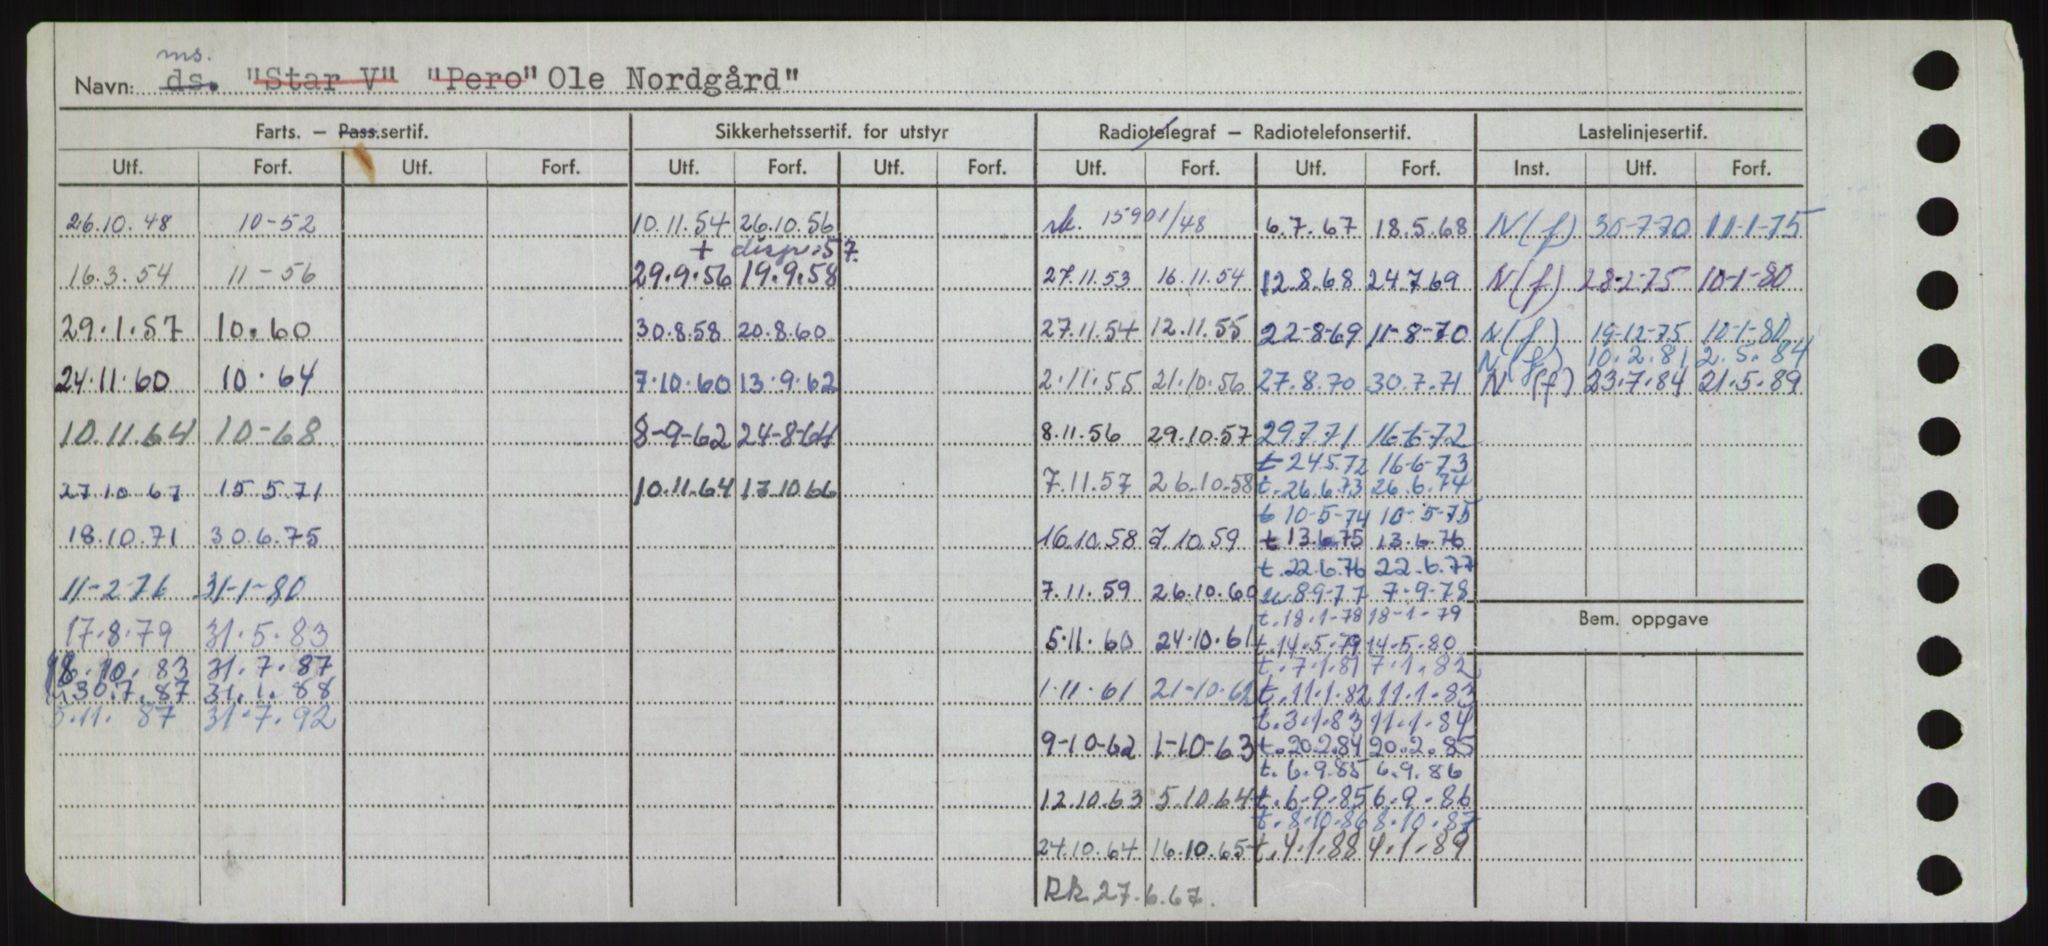 ms.
Navn: ds. "Star V" "Pero" Ole Nordgård"
Farts. – Pass.sertif. Sikkerhetssertif. for utstyr Radiotelegraf – Radiotelefonsertif. Lastelinjesertif.
Utf. Forf. Utf. Forf. Utf. Forf. Utf. Forf. Utf. Forf. Utf. Forf. Inst. Utf. Forf.
26.10.48 10-52 10.11.54 26.10.56 rk. 15901/48 6.7.67 18.5.68 N(f) 30-7-70 11-1-75
+ disp. 57.
16.3.54 11-56 29.9.56 19.9.58 27.11.53 16.11.54 12.8.68 24.7.69 N(f) 28-2-75 10-1-80
29.1.57 10.60 30.8.58 20.8.60 27.11.54 12.11.55 22-8-69 11-8-70 N(f) 19-12-75 10-1-80
N(f) 10.2.81 2.5.84
24.11.60 10.64 7.10.60 13.9.62 2.11.55 21.10.56 27.8.70 30.7.71 N(f) 23.7.84 21.5.89
10.11.64 10-68 8-9-62 24-8-64 8.11.56 29.10.57 29.7.71 16-6-72
t 24.5.72 16-6-73
27.10.67 15.5.71 10.11.64 17.10.66 7.11.57 26.10.58 t. 26.6.73 26.6.74
t 10-5-74 10-5-75
18.10.71 30.6.75 16.10.58 7.10.59 t 13.6.75 13.6.76
t. 22.6.76 22.6.77
11-2-76 31-1-80 7.11.59 26.10.60 8.9.77 7-9-78
t. 18.1.78 18-1-79
Bem. oppgave
17.8.79 31.5.83 5.11.60 24.10.61 t. 14.5.79 14.5.80
18.10.83 31.7.87 t. 7.1.81 7.1.82
30.7.87 31.1.88 1.11.61 21-10-62 t. 11.1.82 11.1.83
5.11.87 31.7.92 t. 3.1.83 11.1.84
9-10-62 1-10-63 t. 20.2.84 20.2.85
t. 6.9.85 6.9.86
12.10.63 5.10.64 t. 6.9.85 6.9.86
t. 8.10.86 8.10.87
24.10.64 16.10.65 t. 4.1.88 4.1.89
Rk. 27.6.67.